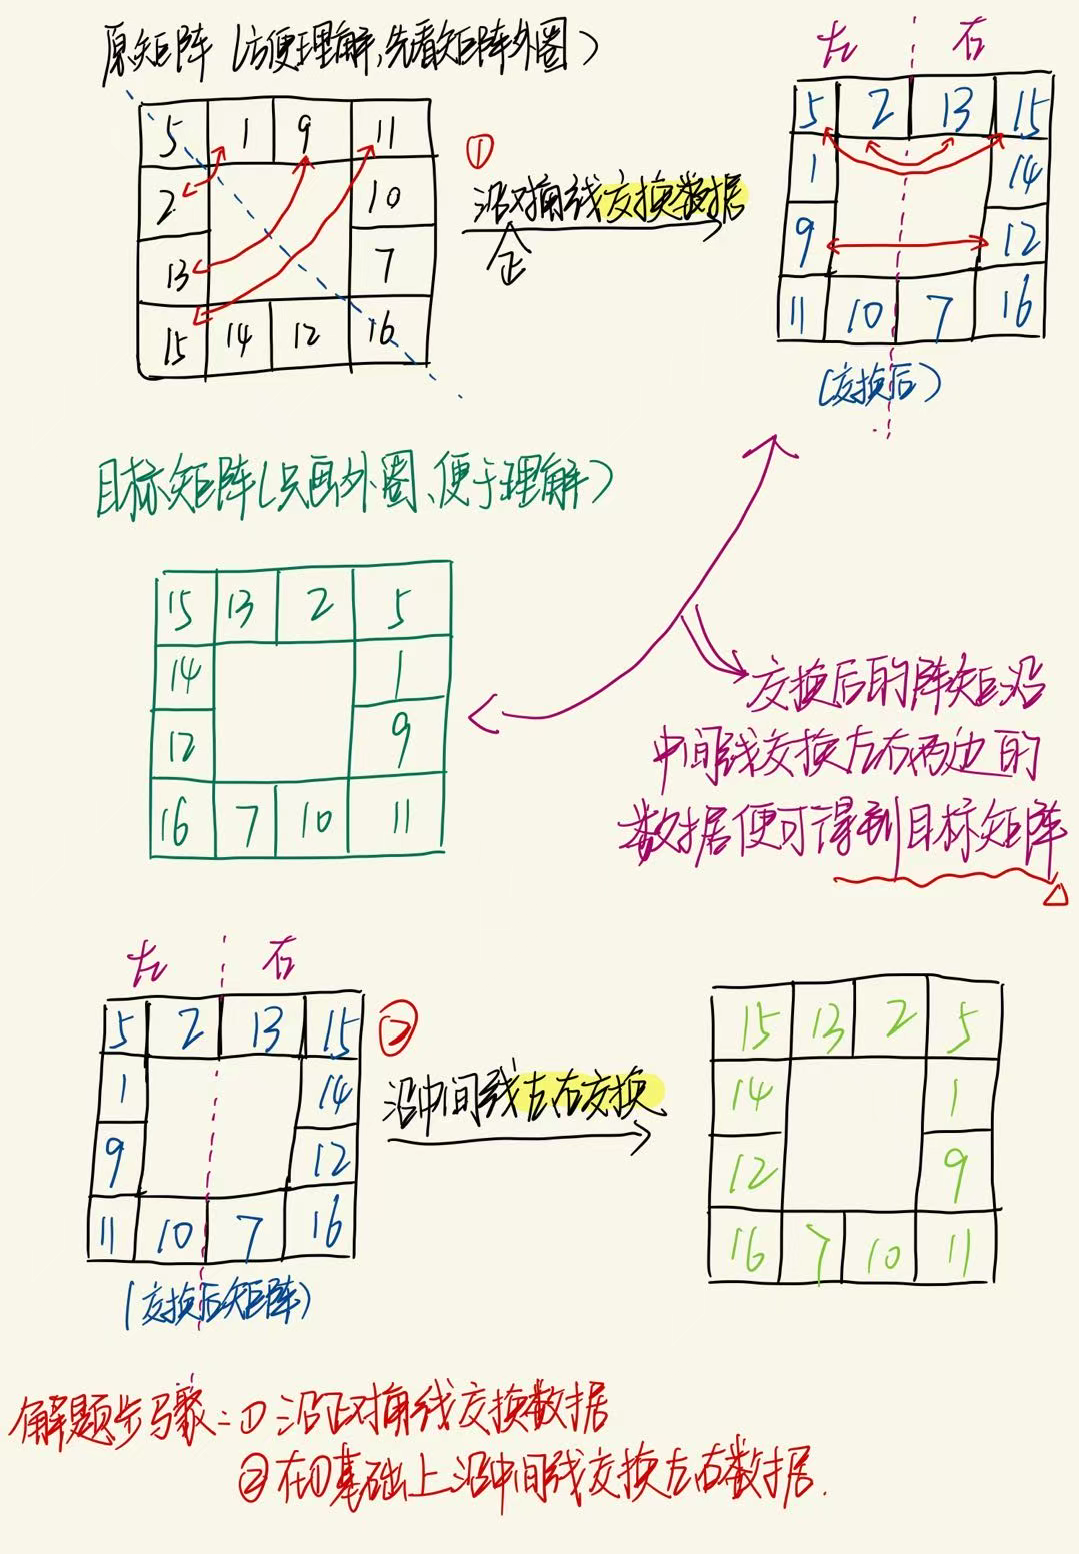 原矩阵（方便理解,先看矩阵外圈）
5 1 9 11
2 10
13 7
15 14 12 16
①
沿对角线交换数据
正
左 右
5 2 13 15
1 14
9 12
11 10 7 16
（交换后）
目标矩阵（只画外圈、便于理解）
15 13 2 5
14 1
12 9
16 7 10 11
交换后的阵矩沿
中间线交换左右两边的
数据便可得到目标矩阵
左 右
5 2 13 15
1 14
9 12
11 10 7 16
（交换后矩阵）
②
沿中间线左右交换
15 13 2 5
14 1
12 9
16 7 10 11
解题步骤：① 沿正对角线交换数据
② 在①基础上沿中间线交换左右数据.